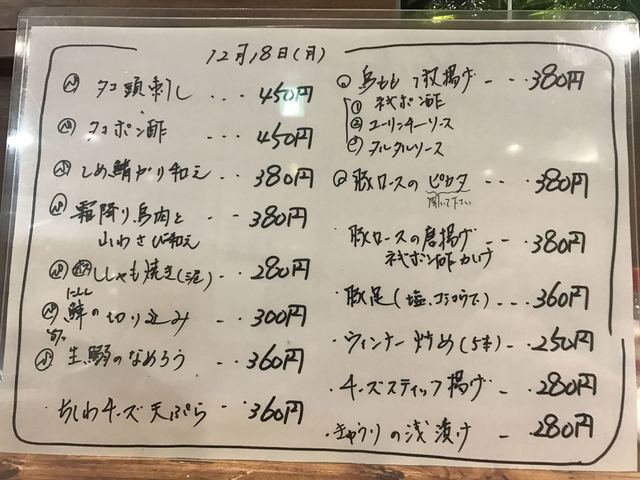 12月18日(月)
タコ頭刺し ... 450円
タコポン酢 ... 450円
しめ鯖ガリ和え ... 380円
霜降り鳥肉と
山わさび和え -- 380円
ししゃも焼き(3尾) -- 280円
にしん
鰊の切り込み -- 300円
生鰯のなめろう -- 360円
ちくわチーズ天ぷら -- 360円
鳥もも1枚揚げ --- 380円
① ネギポン酢
② ユーリンチーソース
③ タルタルソース
豚ロースのピカタ -- 380円
聞いて下さい
豚ロースの唐揚げ
ネギポン酢かけ -- 380円
・豚足(塩、コショウで) -- 360円
・ウィンナー炒め(5本) -- 250円
・チーズスティック揚げ -- 280円
・きゅうりの浅漬け -- 280円